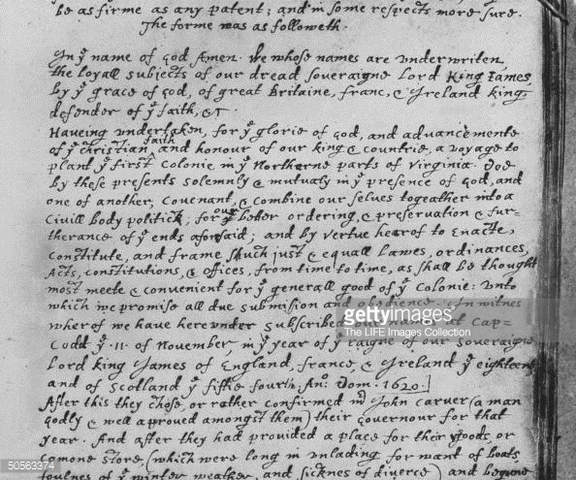 be as firme as any patent; and in some respects more sure.
The forme was as followeth.
In yͤ name of god Amen. We whose names are underwriten,
the loyall subjects of our dread soveraigne Lord King James
by yͤ grace of god, of great Britaine, franc, & Ireland king,
defender of yͤ faith, &c
Haveing undertaken, for yͤ glorie of god, and advancemente
of yͤ christian faith and honour of our king & countrie, a voyage to
plant yͤ first colonie in yͤ Northerne parts of Virginia. Doe
by these presents solemnly & mutualy in yͤ presence of God, and
one of another, covenant, & combine our selves togeather into a
Civill body politick; for our better ordering, & preservation & fur=
therance of yͤ ends aforesaid; and by vertue hearof to enacte,
constitute, and frame such just & equall lawes, ordinances,
Acts, constitutions, & offices, from time to time, as shall be thought
most meete & convenient for yͤ generall good of yͤ Colonie: unto
which we promise all due submission and obedience. In witnes
wherof we have hereunder subscribed our names at Cap=
Codd yͤ .11. of November, in yͤ year of yͤ raigne of our soveraigne
Lord king James of England, france, & Ireland yͤ eighteenth
and of Scotland yͤ fiftie fourth. An: Dom. 1620.]
After this they chose, or rather confirmed mͬ John Carver (a man
godly & well approved amongst them) their governour for that
year. And after they had provided a place for their goods, or
comone store, (which were long in unlading for want of boats
foulnes of yͤ winter weather, and sicknes of diverce) and begune
gettyimages
The LIFE Images Collection
50563374